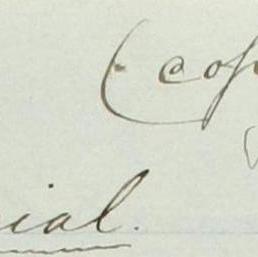 (cop
ial.